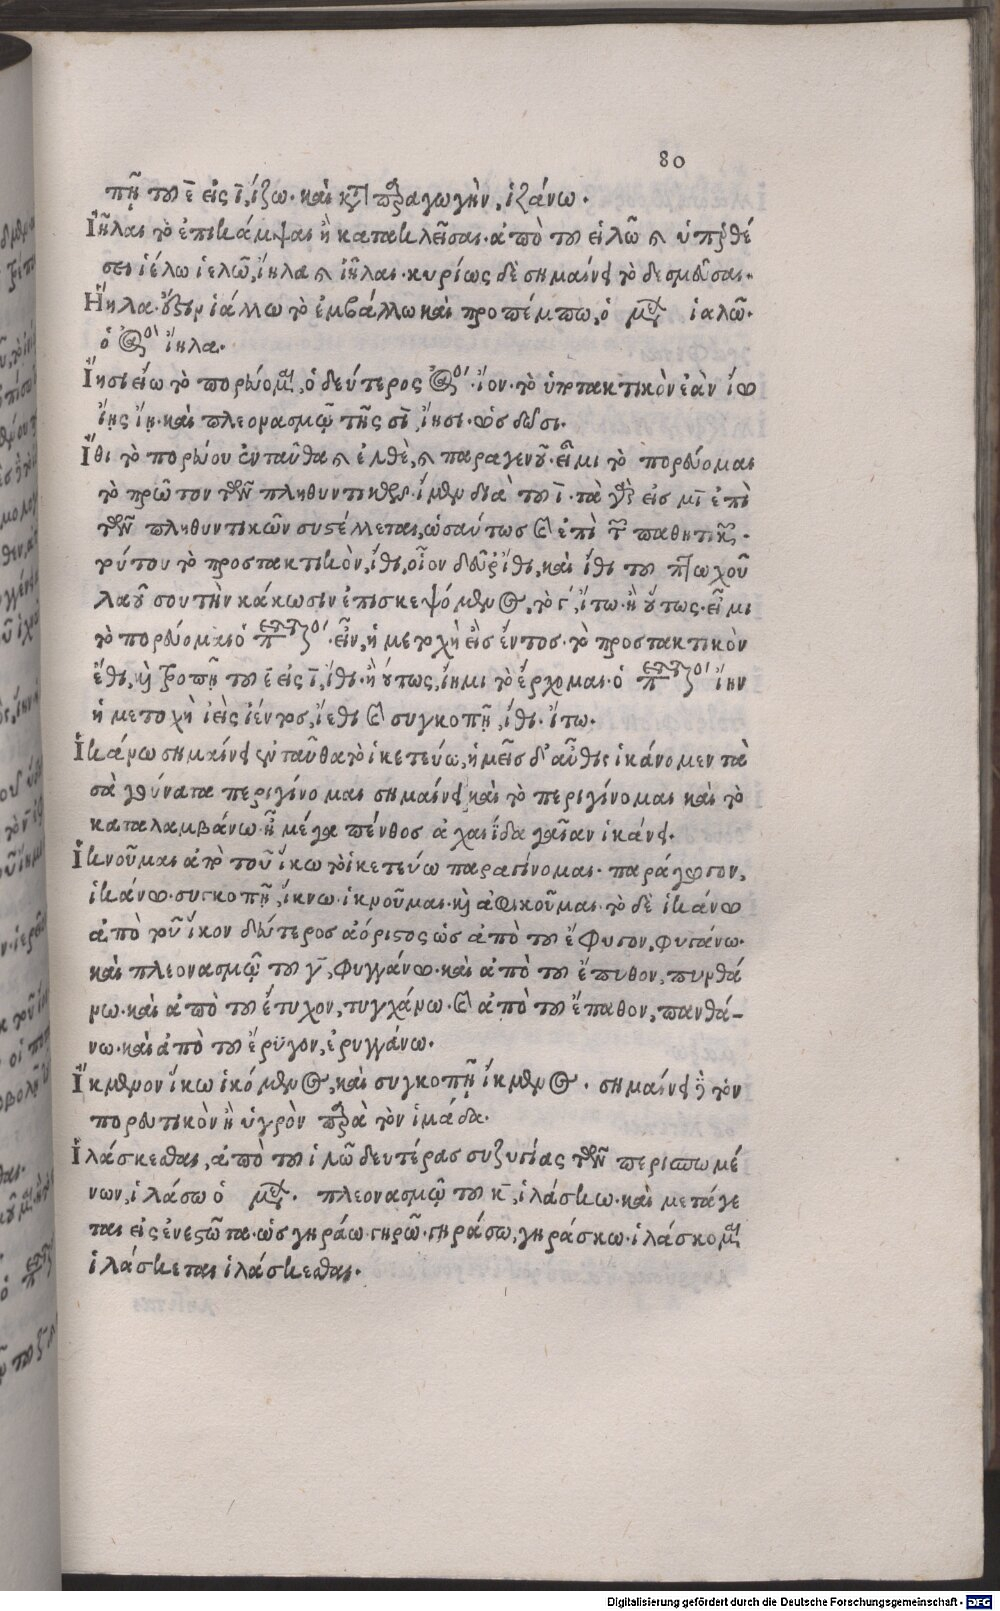 80
πῇ τοῦ ε̄ εἰς ῑ, ἵζω. καὶ κτ πραγωγὴν, ἱζάνω.
Ἰῆλαι τὸ ἐπικάμψαι ἢ κατακλεῖσαι. ἀπὸ τοῦ εἰλῶ ὑπερθέ
σει ἰέλω ἰελῶ, ἴηλα ἰῆλαι. κυρίως δὲ σημαίνει τὸ δεσμεῦσαι.
Ἴηλα. ἰάλλω τὸ ἐμβάλλω καὶ προπέμπω, ὁ μέλ ἰαλῶ.
ὁ ἀοʹ ἴηλα.
Ἴησι εἴω τὸ πορεύομαι, ὁ δεύτερος ἀοʹ. ἴον. τὸ ὑποτακτικὸν ἐὰν ἴω
ἴῃς ἴῃ. καὶ πλεονασμῷ τῆς σῑ, ἴησι. ὡς δῶσι.
Ἴθι τὸ πορεύου ἐνταῦθα ἐλθὲ, παραγενοῦ. εἶμι τὸ πορεύομαι
τὸ πρῶτον τῶν πληθυντικῶν. ἴμεν διὰ τοῦ ῑ. τὰ γὰρ εἰς μῑ ἐπὶ
τῶν πληθυντικῶν συστέλλεται, ὡσαύτως καὶ ἐπὶ τ παθητικ.
τούτου τὸ προστακτικὸν, ἴθι, οἷον δεῦρ' ἴθι, καὶ ἴθι τοῦ πτωχοῦ
λαοῦ σου τὴν κάκωσιν ἐπισκεψόμενος, τὸ γʹ, ἴτω. ἢ οὕτως. εἶμι
τὸ πορεύομαι ὁ πρτʹ. εἶν, ἡ μετοχὴ εἲς ἔντος. τὸ προστακτικὸν
ἔθι, καὶ τροπῇ τοῦ ε̄ εἰς ῑ, ἴθι. ἢ οὕτως, ἴημι τὸ ἔρχομαι. ὁ πρτʹ ἴην
ἡ μετοχὴ ἰεὶς ἰέντος, ἴεθι καὶ συγκοπῇ, ἴθι. ἴτω.
Ἱκάνω σημαίνει ἐνταῦθα τὸ ἱκετεύω, ἡμεῖς δ' αὖθις ἱκάνομεν τὰ
σὰ γούνατα περιγίνομαι σημαίνει καὶ τὸ περιγίνομαι καὶ τὸ
καταλαμβάνω. ἦ μέγα πένθος ἀχαιΐδα γαῖαν ἱκάνει.
Ἱκνοῦμαι ἀπὸ τοῦ ἵκω τὸ ἱκετεύω παραγίνομαι. παράγωγον,
ἱκάνω. συγκοπῇ, ἵκνω. ἱκνοῦμαι. καὶ ἀφικοῦμαι. τὸ δὲ ἱκάνω
ἀπὸ τοῦ ἵκον δεύτερος ἀόριστος ὡς ἀπὸ τοῦ ἔφυγον, φυγάνω.
καὶ πλεονασμῷ τοῦ γ̄, φυγγάνω. καὶ ἀπὸ τοῦ ἔπυθον, πυνθά
νω. καὶ ἀπὸ τοῦ ἔτυχον, τυγχάνω. καὶ ἀπὸ τοῦ ἔπαθον, πανθά-
νω. καὶ ἀπὸ τοῦ ἔρυγον, ἐρυγγάνω.
Ἴκμενον ἵκω ἱκόμενος, καὶ συγκοπῇ ἵκμενος. σημαίνει ἢ τὸν
πορευτικὸν ἢ ὑγρὸν παρὰ τὸν ἰμάδα.
Ἱλάσκεσθαι, ἀπὸ τοῦ ἱλῶ δευτέρας συζυγίας τῶν περισπωμέ
νων, ἱλάσω ὁ μέλ. πλεονασμῷ τοῦ κ̄, ἱλάσκω. καὶ μετάγε
ται εἰς ἐνεστῶτα. ὡς γηράω. γηρῶ. γηράσω, γηράσκω. ἱλάσκομαι
ἱλάσκεται ἱλάσκεσθαι.
Digitalisierung gefördert durch die Deutsche Forschungsgemeinschaft - DFG